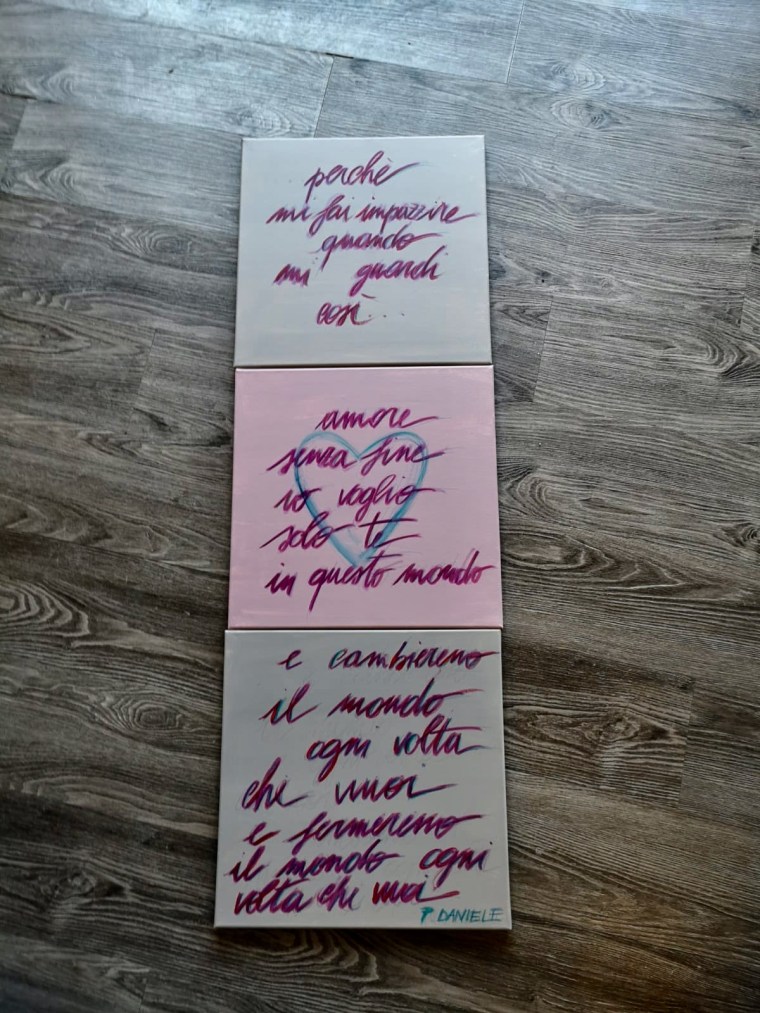 perchè
mi fai impazzire
quando
mi guardi
così...
amore
senza fine
io voglio
solo te
in questo mondo
e cambieremo
il mondo
ogni volta
che vuoi
e fermeremo
il mondo ogni
volta che vuoi
P. DANIELE